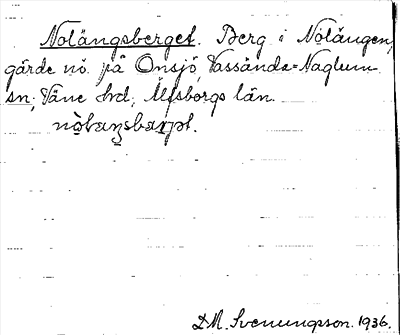 Nolängsberget. Berg i Nolängen,
gärde nö. på Onsjö, Vassända-Naglum
sn; Väne hrd, Älvsborgs län.
D.M. Svenungsson. 1936.